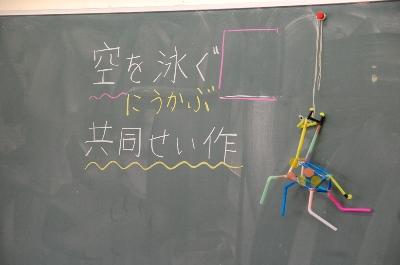 空を泳ぐ
にうかぶ
共同せい作